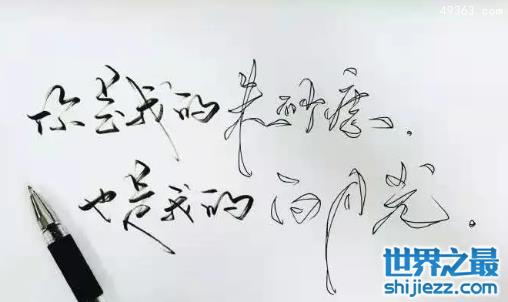 49363.com
你是我的朱砂痣.
也是我的白月光.
世界之最
shijiezz.com